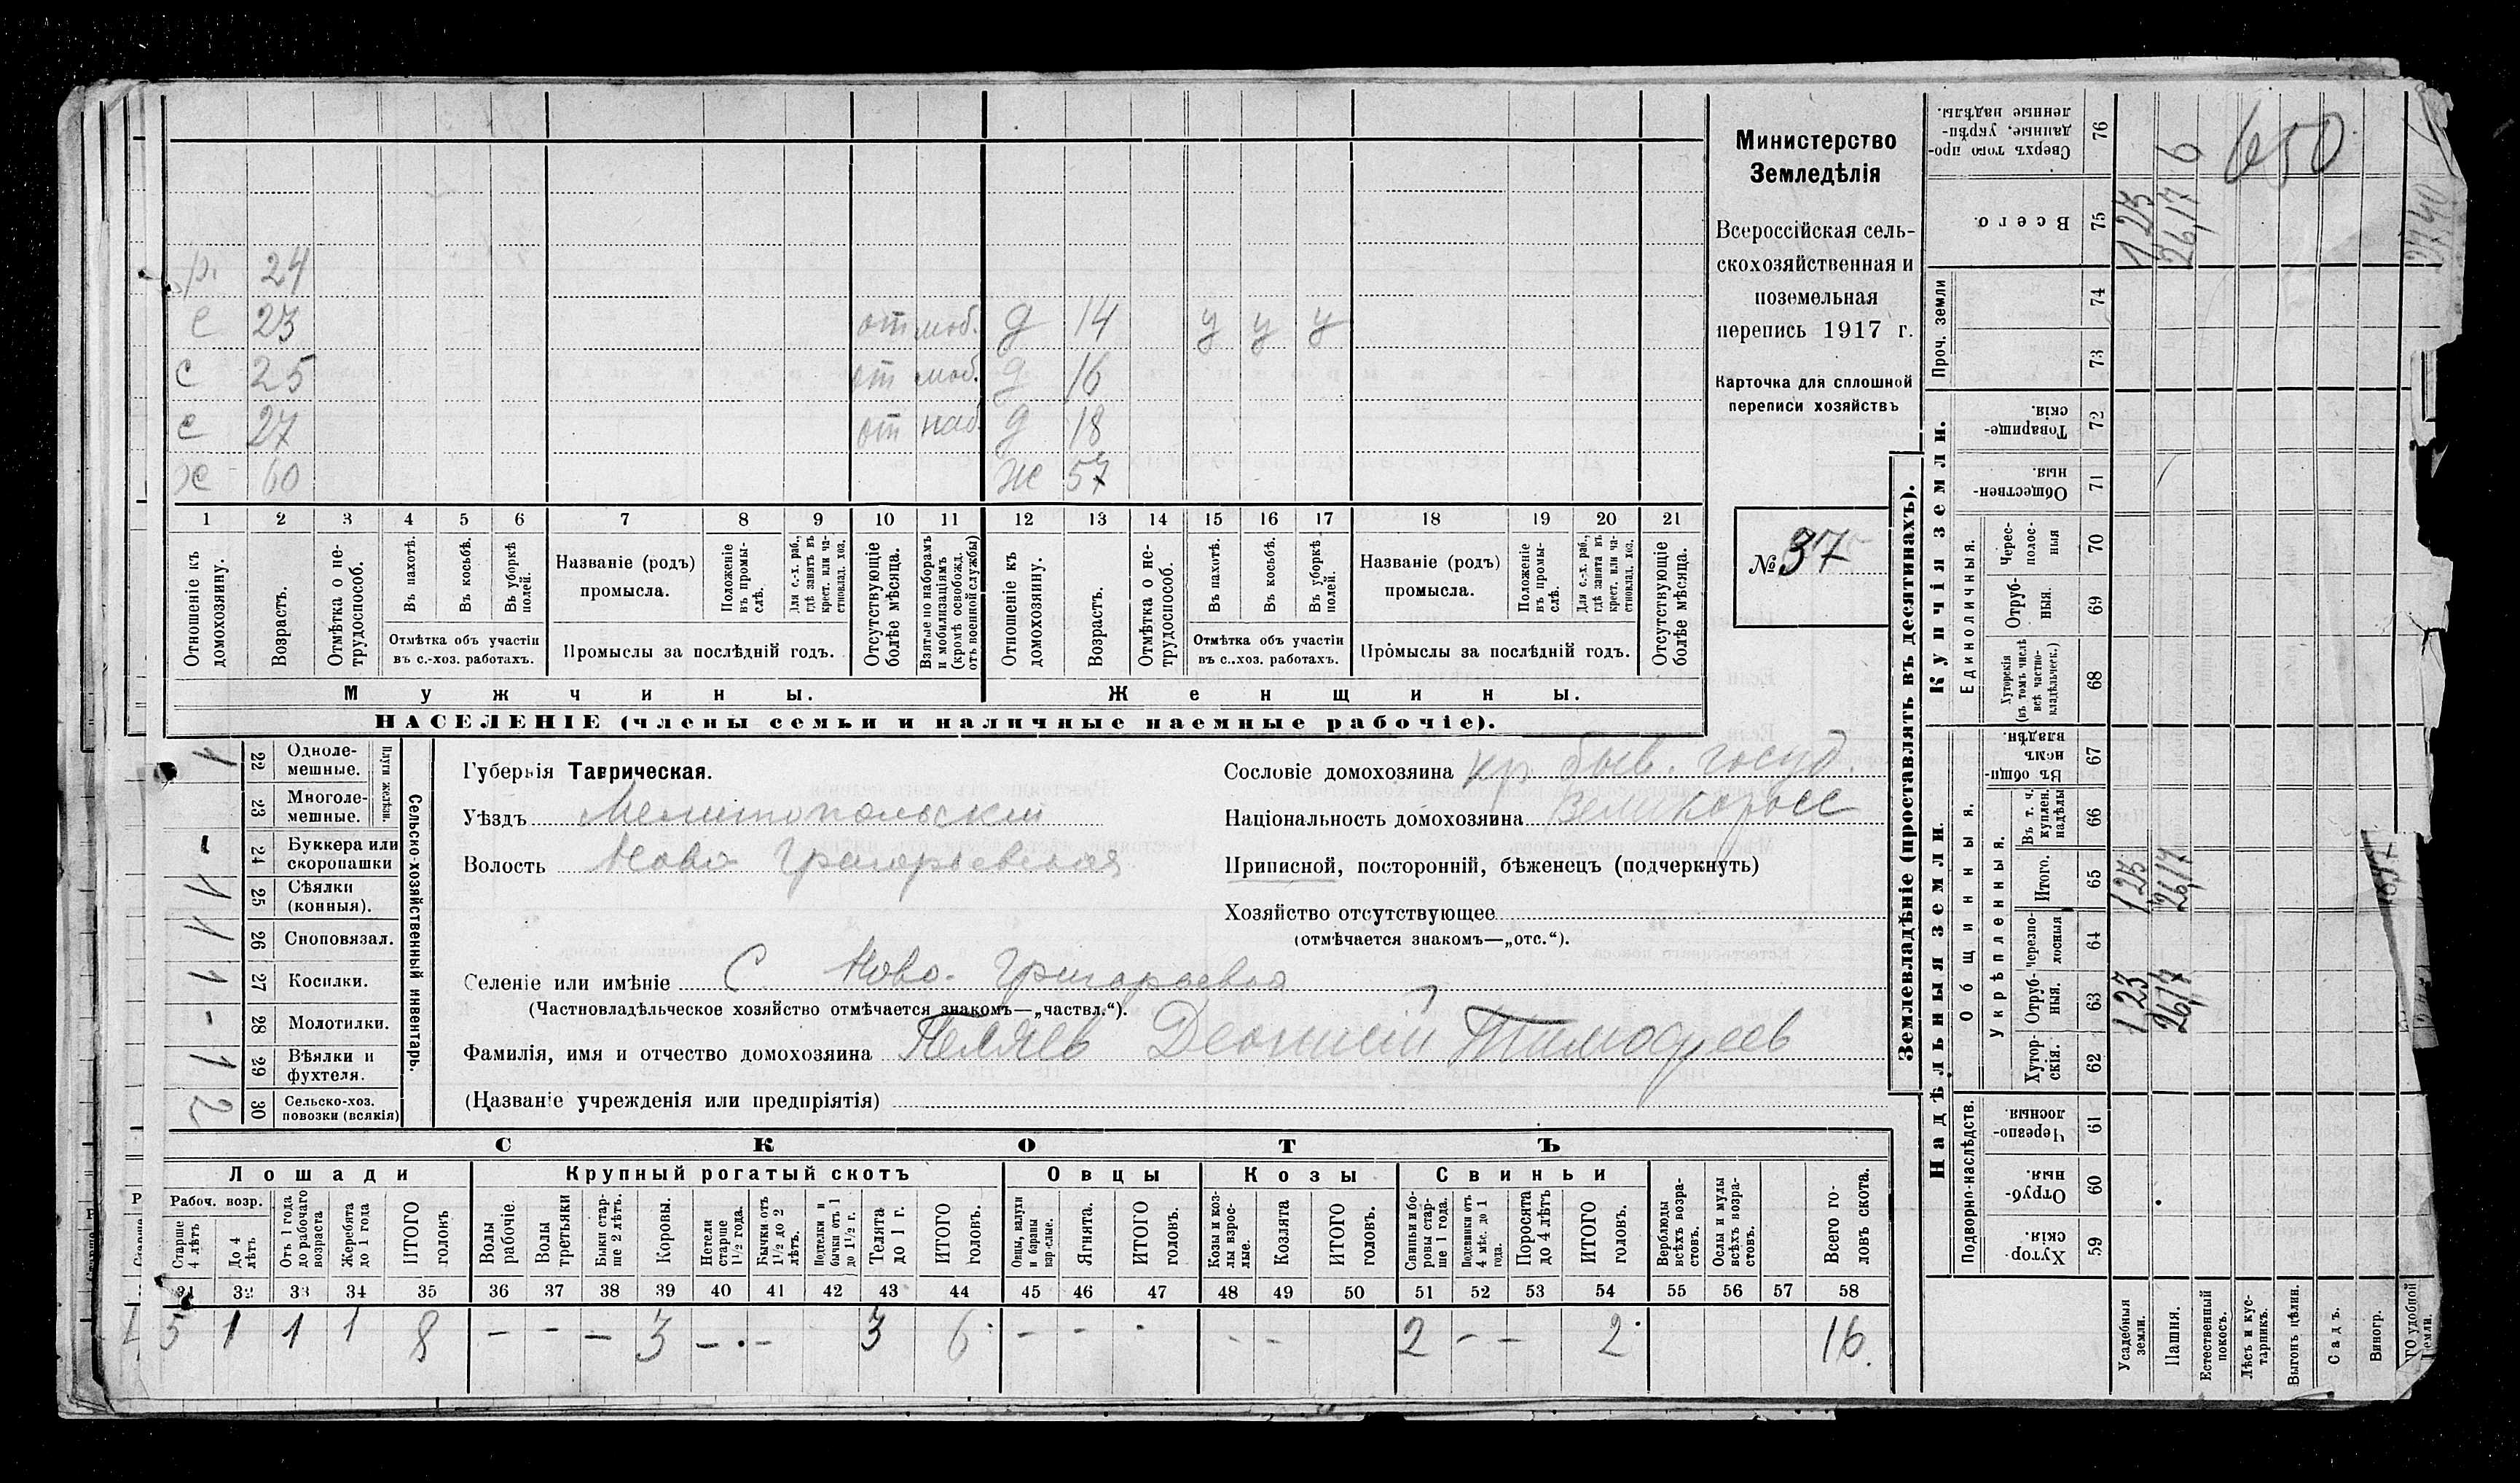 р. 24
с 23 от моб. д 14 у у у
с 25 от моб. д 16
с 27 от наб. д 18
х 60 ж 57
1 2 3 4 5 6 7 8 9 10 11 12 13 14 15 16 17 18 19 20 21
Отношеніе къ домохозяину.
Возрастъ.
Отмѣтка о нетрудоспособ.
Въ пахотѣ.
Въ косьбѣ.
Въ уборкѣ полей.
Отмѣтка объ участіи въ с.-хоз. работахъ.
Названіе (родъ) промысла.
Положеніе въ промыслѣ.
Для с.-х. раб., гдѣ занятъ въ крест. или частновлад. хоз.
Промыслы за послѣдній годъ.
Отсутствующіе болѣе мѣсяца.
Взятые по наборамъ и мобилизаціямъ (кромѣ освобожд. отъ военной службы)
Отношеніе къ домохозяину.
Возрастъ.
Отмѣтка о нетрудоспособ.
Въ пахотѣ.
Въ косьбѣ.
Въ уборкѣ полей.
Отмѣтка объ участіи въ с.-хоз. работахъ.
Названіе (родъ) промысла.
Положеніе въ промыслѣ.
Для с.-х. раб., гдѣ занята въ крест. или частновлад. хоз.
Промыслы за послѣдній годъ.
Отсутствующіе болѣе мѣсяца.
Мужчины. Женщины.
НАСЕЛЕНІЕ (члены семьи и наличные наемные рабочіе).
Министерство
Земледѣлія
Всероссійская сель-
скохозяйственная и
поземельная
перепись 1917 г.
Карточка для сплошной
переписи хозяйствъ
№ 37
Сельско-хозяйственный инвентарь.
Плуги желѣзн.
1 22 Однолемешные.
23 Многолемешные.
- 24 Буккера или скоропашки
1 25 Сѣялки (конныя).
1 26 Сноповязал.
1 27 Косилки.
- 28 Молотилки.
1 29 Вѣялки и фухтеля.
2 30 Сельско-хоз. повозки (всякія)
Губернія Таврическая.
Уѣздъ Мелитопольскій
Волость Ново Григорьевская
Сословіе домохозяина кр. быв. госуд.
Національность домохозяина Великоросс
Приписной, посторонній, бѣженецъ (подчеркнуть)
Хозяйство отсутствующее
(отмѣчается знакомъ—„отс.“).
Селеніе или имѣніе С. Ново-Григорьевка
(Частновладѣльческое хозяйство отмѣчается знакомъ—„частвл.“).
Фамилія, имя и отчество домохозяина Тимофеев
(Названіе учрежденія или предпріятія)
СКОТЪ
Лошади Крупный рогатый скотъ Овцы Козы Свиньи
Рабоч. возр.
Старше 4 лѣтъ
До 4 лѣтъ
Отъ 1 года до рабочаго возраста
Жеребята до 1 года
ИТОГО головъ
Волы рабочіе.
Волы третьяки
Быки старше 2 лѣтъ.
Коровы.
Нетели старше 1½ года.
Бычки отъ 1½ до 2 лѣтъ.
Подтелки и бычки отъ 1 до 1½ г.
Телята до 1 г.
ИТОГО головъ.
Овцы, валухи и бараны взрослые.
Ягнята.
ИТОГО головъ.
Козы и козлы взрослые.
Козлята
ИТОГО головъ.
Свиньи и боровы старше 1 года.
Подсвинки отъ 4 мѣс. до 1 года.
Поросята до 4 лѣтъ
ИТОГО головъ.
Верблюды всѣхъ возрастовъ.
Ослы и мулы всѣхъ возрастовъ.
Всего головъ скота.
31 32 33 34 35 36 37 38 39 40 41 42 43 44 45 46 47 48 49 50 51 52 53 54 55 56 57 58
5 1 1 1 8 - - - 3 - - 3 6 - - - - 2 - - 2 16.
Землевладѣніе (проставлять въ десятинахъ).
Купчія земли. Надѣльныя земли.
Сверхъ того проданные, укрѣпленные надѣлы. 76
Всего. 75 1,25 26,17 6 650
Проч. земли 74 73
Товарищескія. 72
Общественныя. 71
Единоличныя.
Чересполосныя 70
Отрубныя. 69
Хуторскія (въ томъ числѣ всѣ частновладѣльческ.) 68
Общинныя.
Въ общинномъ владѣн. 67
Укрѣпленныя.
Въ т. ч. куплен. надѣлы 66
Итого. 65 1,25 26,17
Черезполосныя 64
Отрубныя. 63 1,23 26,17
Хуторскія. 62
Подворно-наслѣдств.
Черезполосныя 61
Отрубныя 60
Хуторскія. 59
Усадебныя земли.
Пашня.
Естественный покосъ.
Лѣсъ и кустарникъ.
Выгонъ цѣлин.
Садъ.
Виногр.
удобной земли.